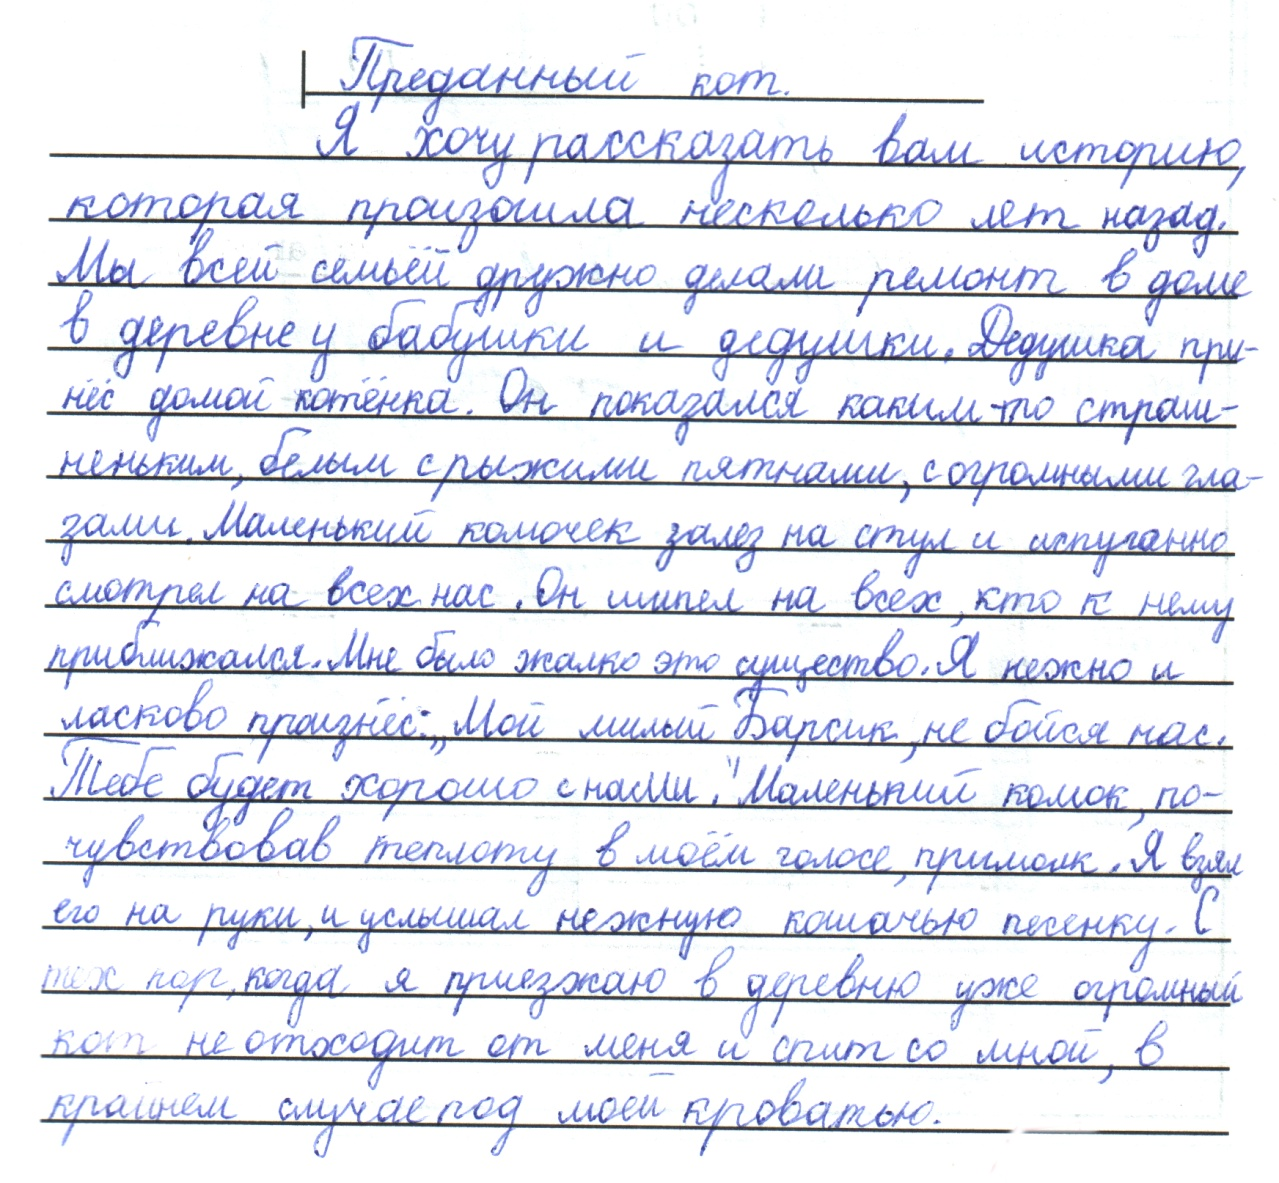 Преданный кот.
Я хочу рассказать вам историю,
которая произошла несколько лет назад.
Мы всей семьёй дружно делали ремонт в доме
в деревне у бабушки и дедушки. Дедушка при-
нёс домой котёнка. Он показался каким-то страш-
неньким, белым с рыжими пятнами, с огромными гла-
зами. Маленький комочек залез на стул и испуганно
смотрел на всех нас. Он шипел на всех, кто к нему
приближался. Мне было жалко это существо. Я нежно и
ласково произнёс: „Мой милый Барсик, не бойся нас.
Тебе будет хорошо с нами." Маленький комок, по-
чувствовав теплоту в моём голосе, примолк. Я взял
его на руки, и услышал нежную кошачью песенку. С
тех пор, когда я приезжаю в деревню уже огромный
кот не отходит от меня и спит со мной, в
крайнем случае под моей кроватью.